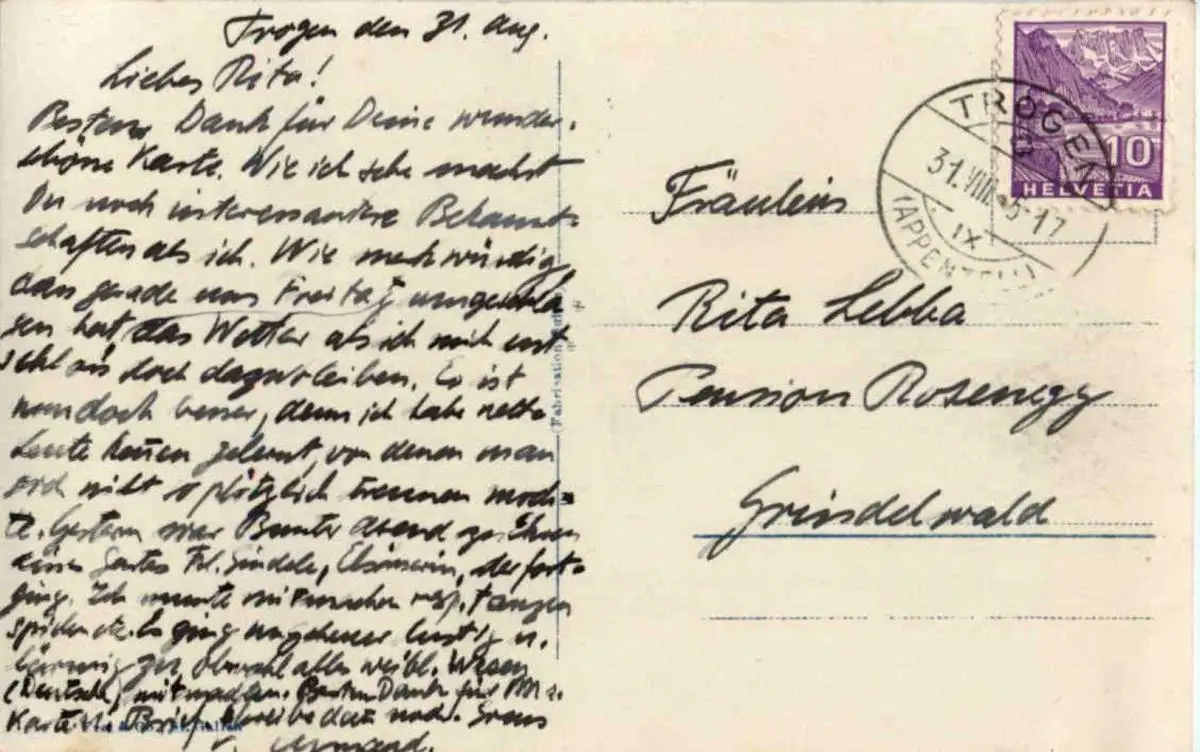 Trogen den 31. Aug.
Liebes Rita!
Besten Dank für Deine wunder-
schöne Karte. Wie ich sehe machst
Du noch interessantere Bekannt-
schaften als ich. Wie merkwürdig,
dass gerade am Freitag umgeschla-
gen hat, das Wetter als ich mich ent
schloss doch dazubleiben. Es ist
nun doch besser, denn ich habe nette
Leute kennen gelernt, von denen man
sich nicht so plötzlich trennen möch-
te. Gestern war Bunter Abend zu Ehren
eines Gastes Frl. , der fort-
ging. Ich musste mitmachen resp. tanzen
spielen etc. Es ging ungeheuer lustig u.
lärmig zu obwohl alles weibl. Wesen
(Deutsche) mitmachten. Besten Dank für
Karte u. Brief, schreibe dann noch. Gruss
Fräulein
Rita Lebba
Pension Rosenegg
Grindelwald
TROGEN
31.VIII. 5-17
IX
(APPENZELL)
10
HELVETIA